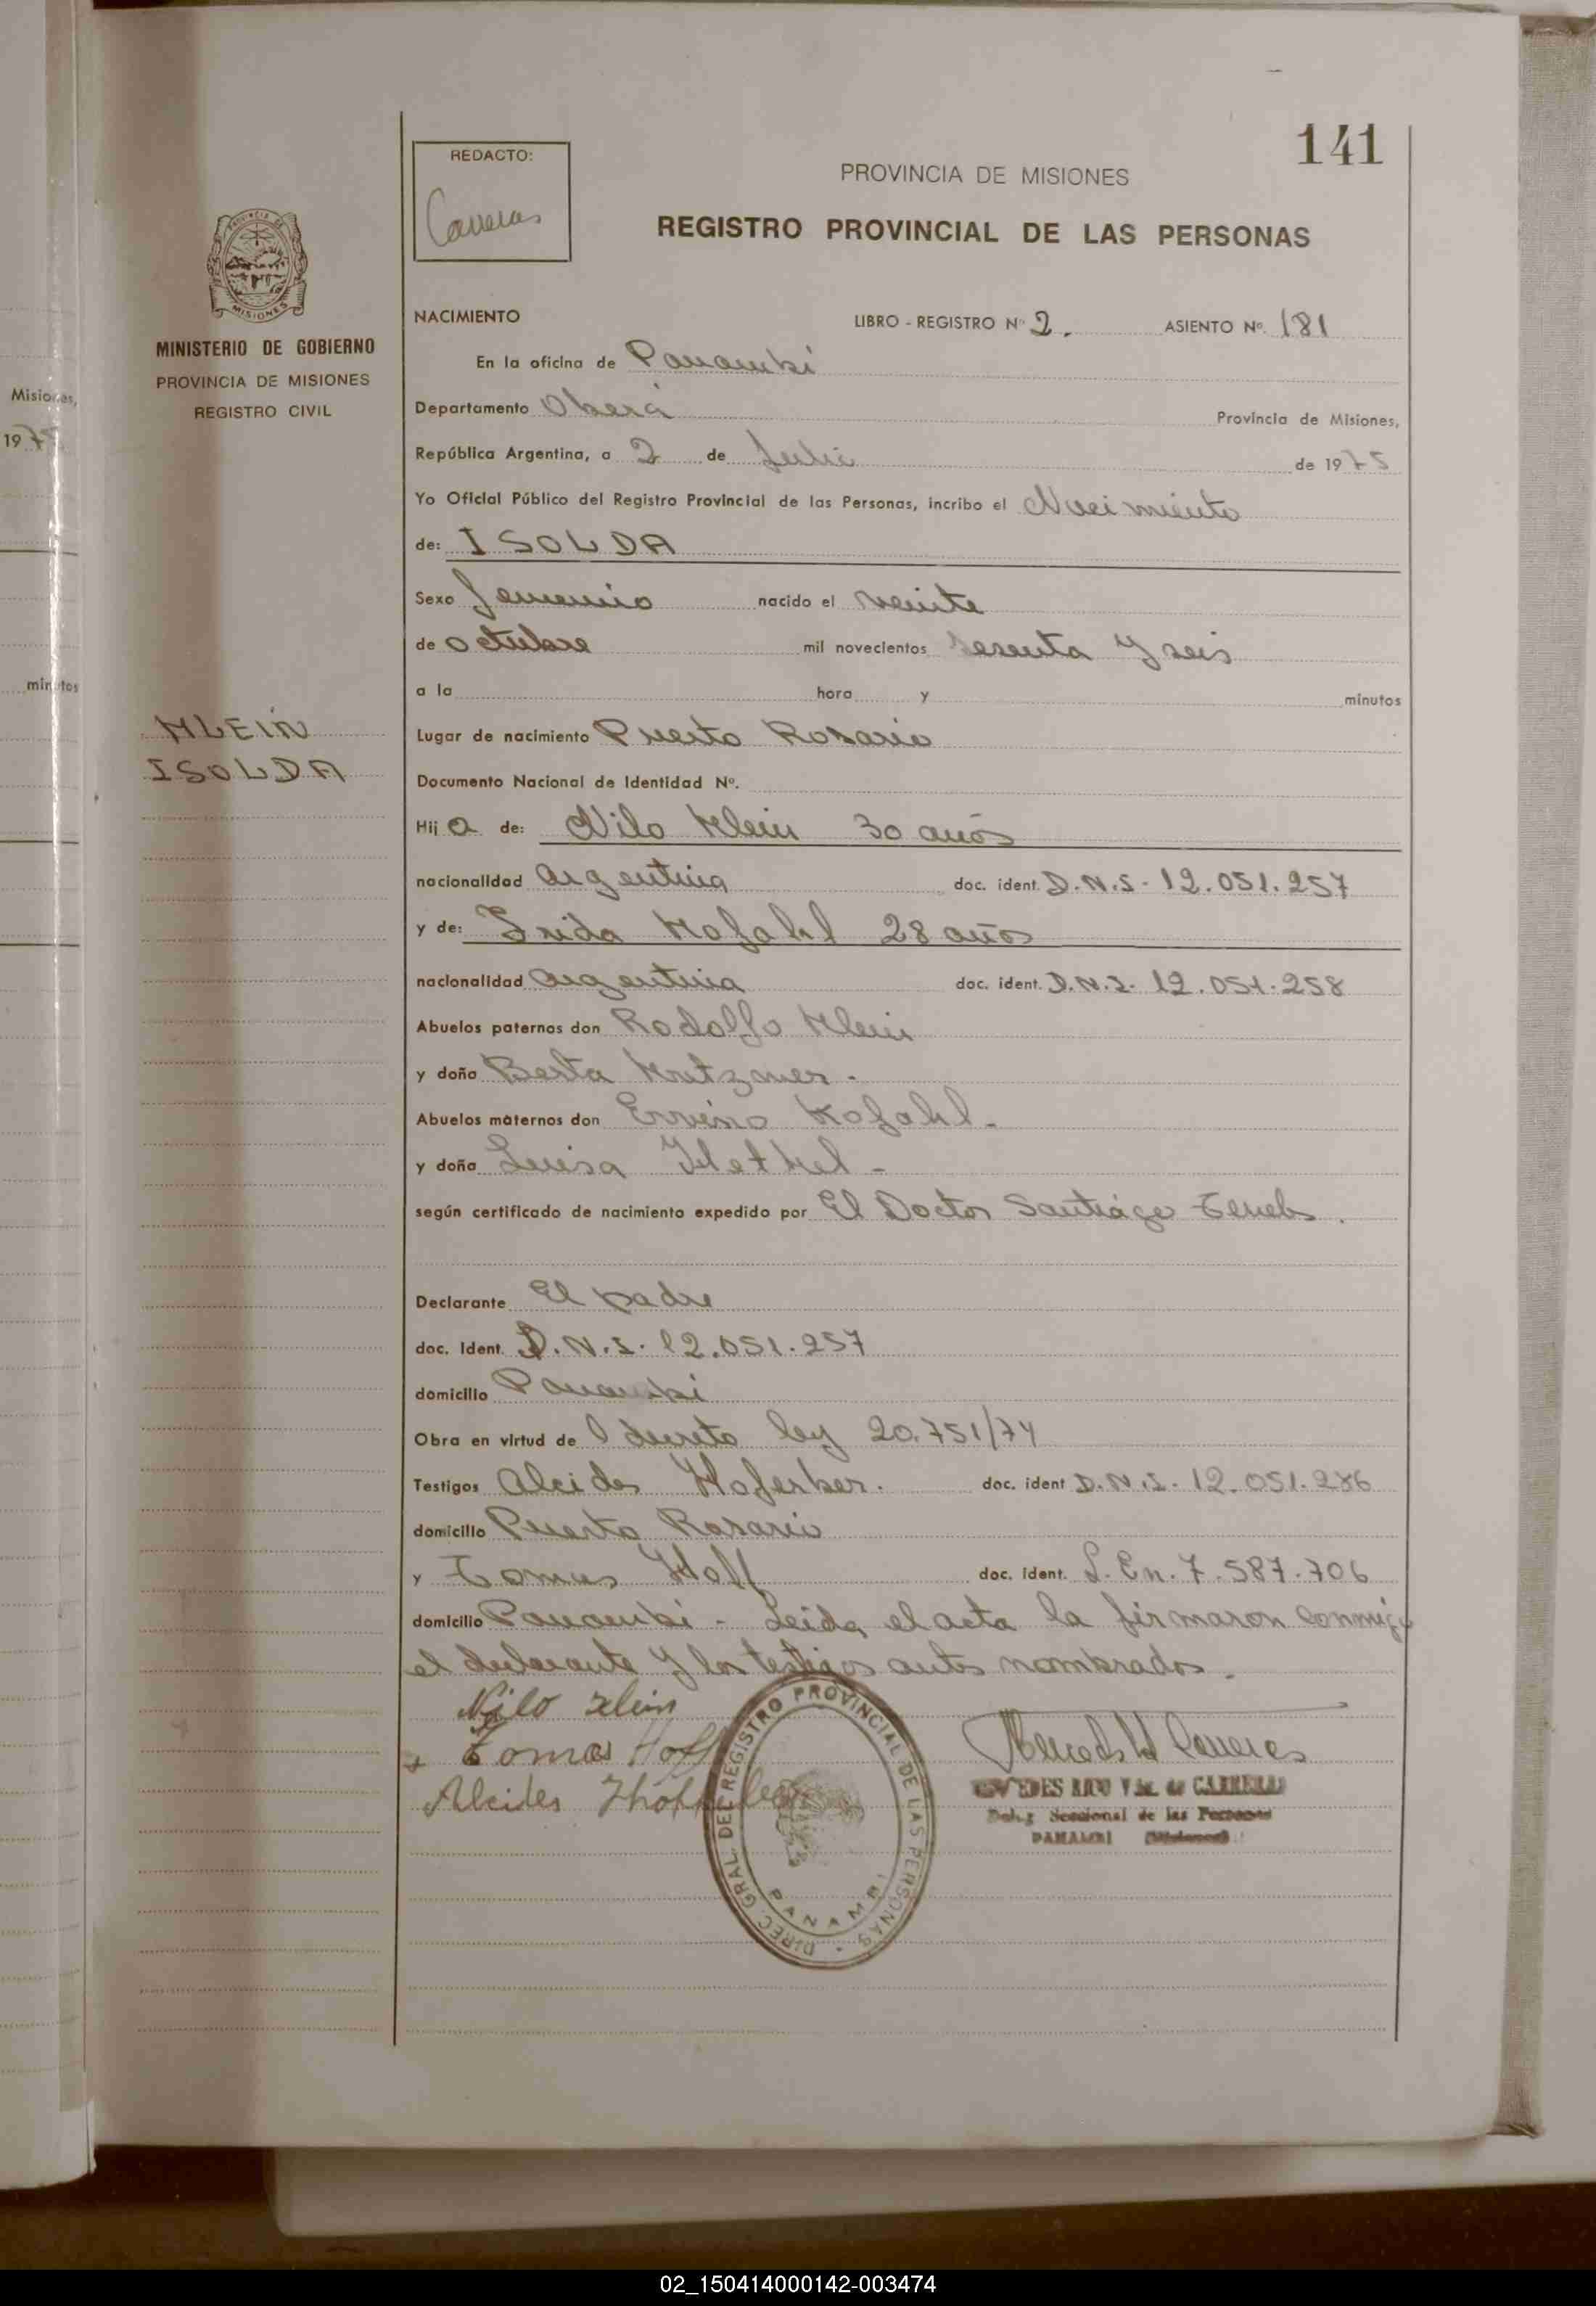 141
REDACTO:
Carreras
PROVINCIA DE MISIONES
REGISTRO PROVINCIAL DE LAS PERSONAS
PROVINCIA DE
MISIONES
MINISTERIO DE GOBIERNO
PROVINCIA DE MISIONES
REGISTRO CIVIL
Misiones,
197
minutos
KLEIN
ISOLDA
NACIMIENTO LIBRO - REGISTRO Nº 2. ASIENTO Nº. 181
En la oficina de Panambi
Departamento Oberá Provincia de Misiones,
República Argentina, a 2 de Julio de 1975
Yo Oficial Público del Registro Provincial de las Personas, incribo el Nacimiento
de: ISOLDA
Sexo femenino nacido el veinte
de octubre mil novecientos sesenta y seis
a la hora y minutos
Lugar de nacimiento Puerto Rosario
Documento Nacional de Identidad Nº.
Hij a de: Nilo Klein 30 años
nacionalidad argentina doc. ident. D.N.I. 12.051.257
y de: Frida Kofahl 28 años
nacionalidad argentina doc. ident. D.N.I. 12.051.258
Abuelos paternos don Rodolfo Klein
y doña Berta Krutzmer.
Abuelos maternos don Ervino Kofahl.
y doña Luisa
según certificado de nacimiento expedido por El Doctor Santiago
Declarante El padre
doc. Ident. D.N.I. 12.051.257
domicilio Panambi
Obra en virtud de l decreto ley 20.751/74
Testigos Alcides doc. ident D.N.I. 12.051.286
domicilio Puerto Rosario
y Tomas Hoff doc. ident. L. En. 7.587.706
domicilio Panambi - Leida el acta la firmaron conmigo
el declarante y los testigos antes nombrados.
Nilo Klein
Tomas Hoff
Alcides
DIREC. GRAL. DEL REGISTRO PROVINCIAL DE LAS PERSONAS
PANAMBI
MERCEDES RIVO Vda. de CARRERAS
Del. Seccional de las Personas
PANAMBI (Misiones)
02_150414000142-003474